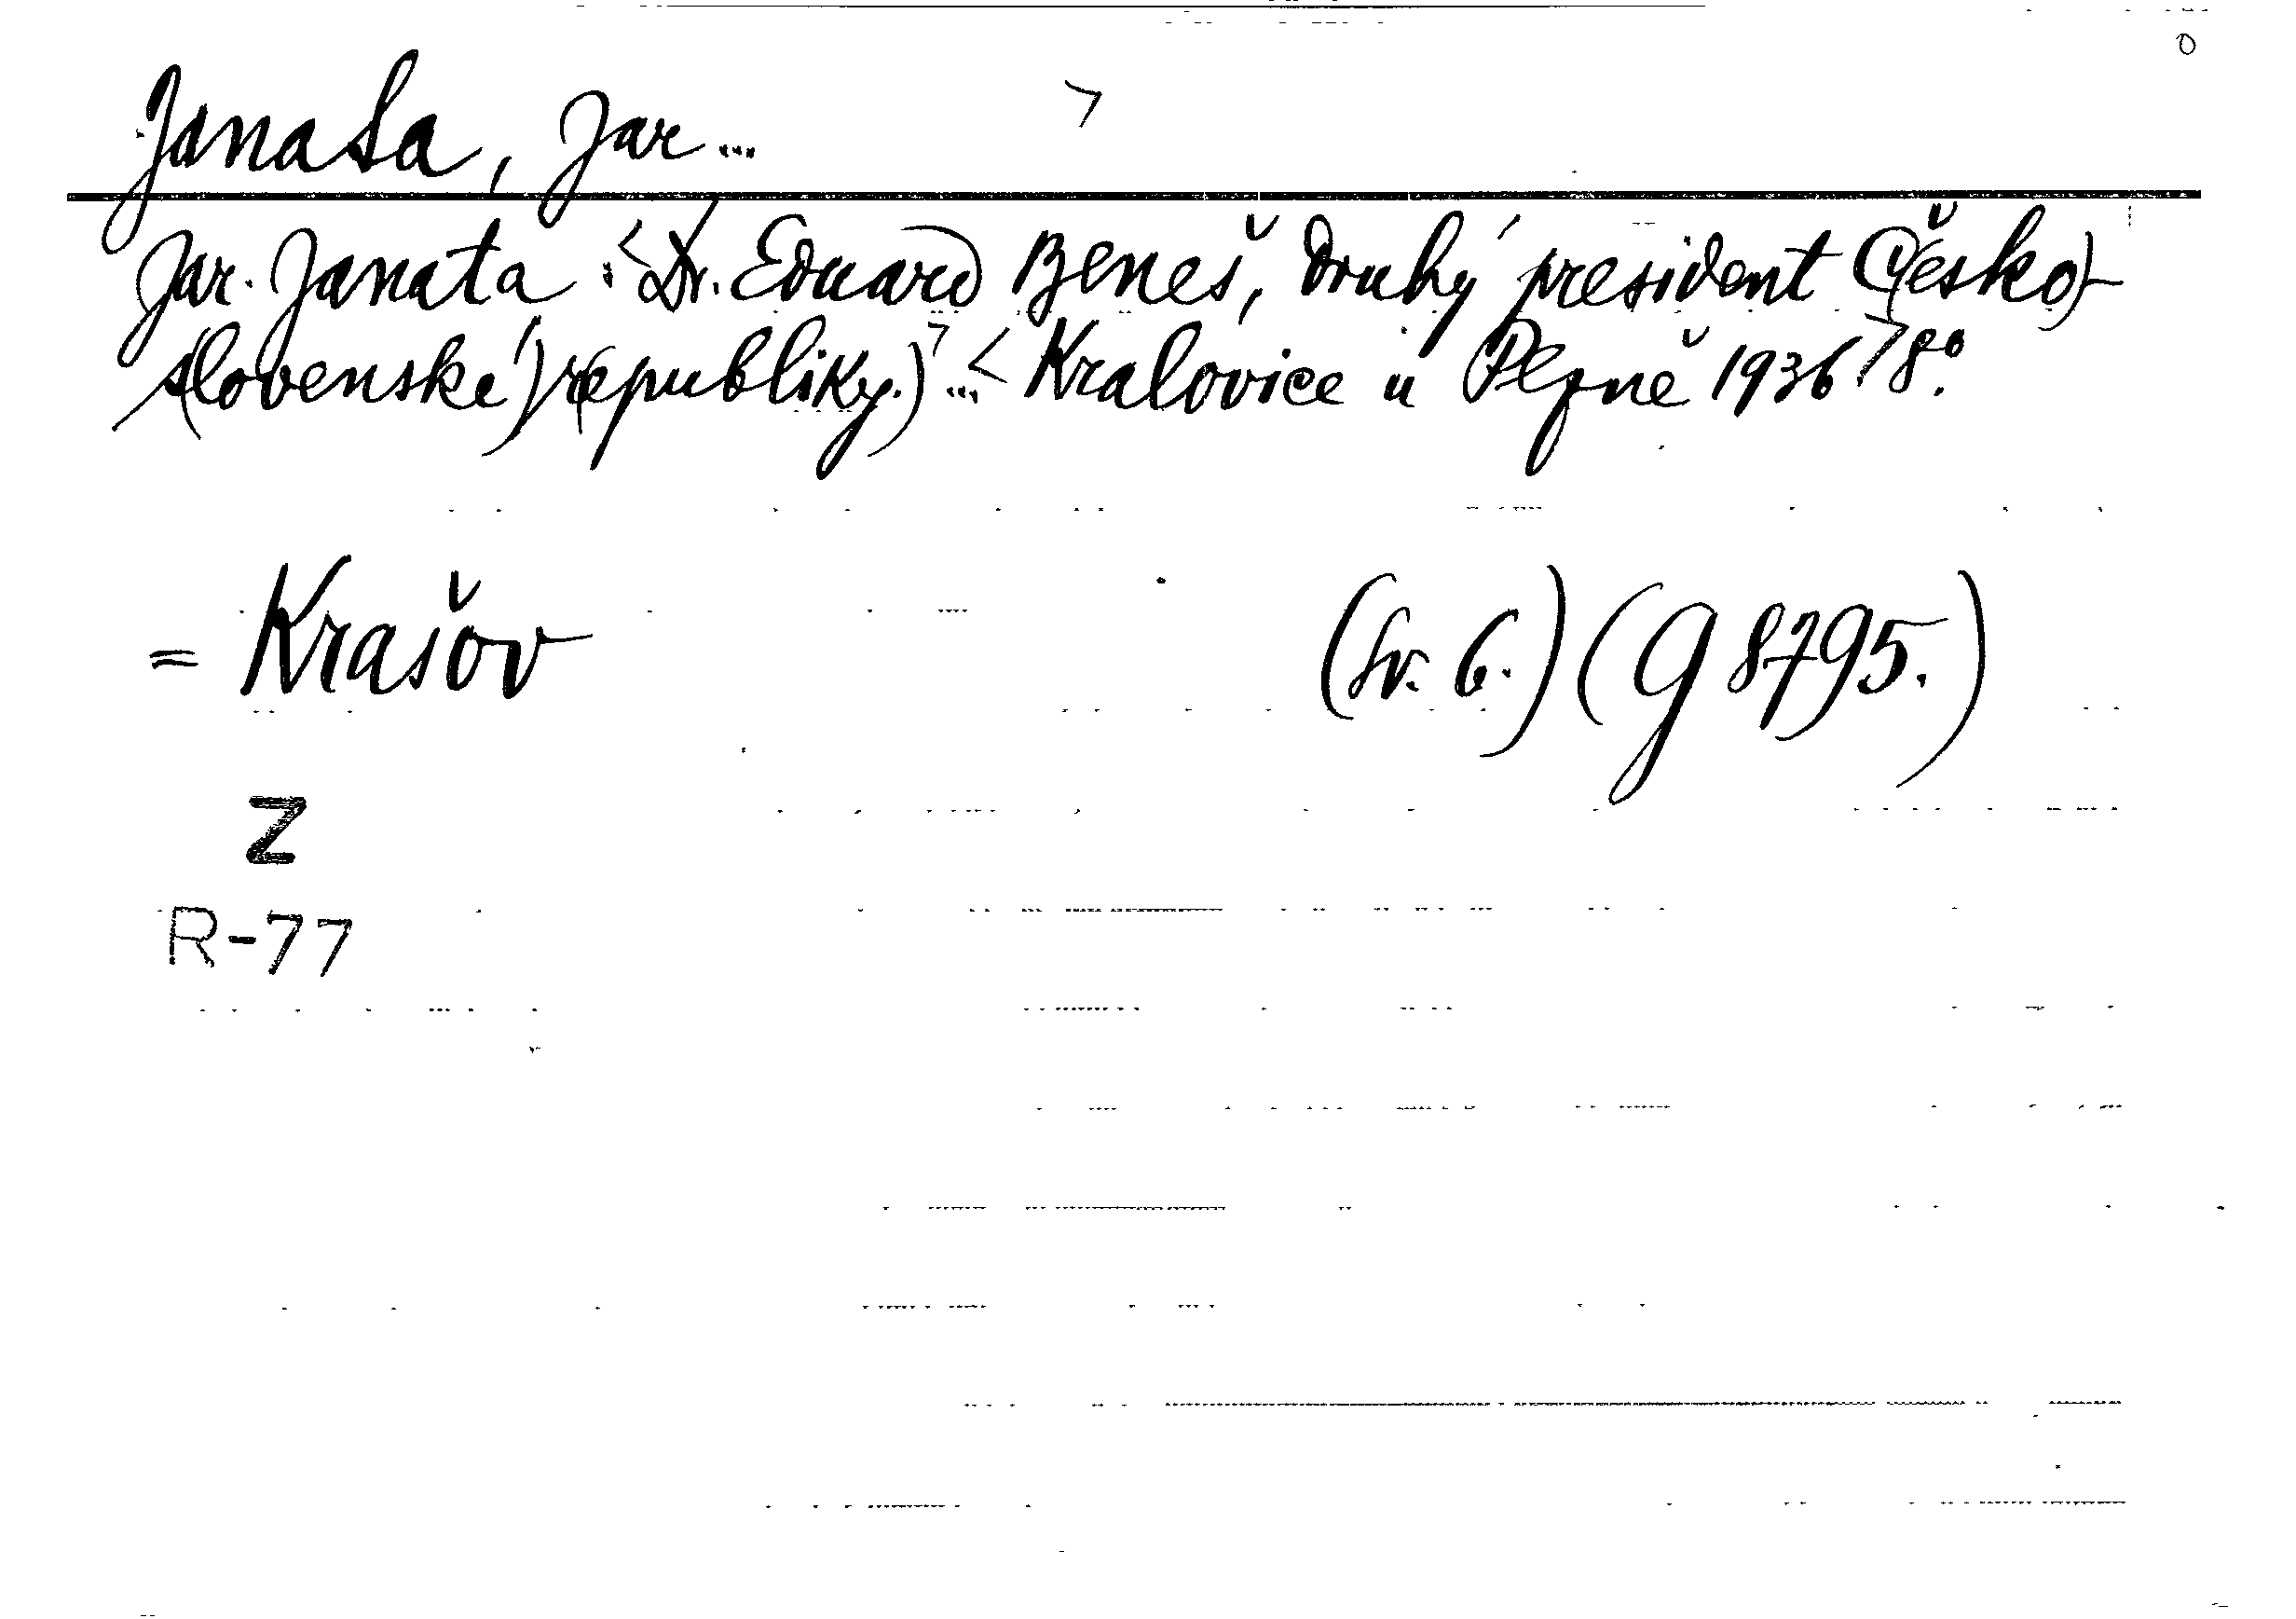 Janata, Jar...
Jar. Janata: <Dr. Eduard Beneš, druhý president Č(esko)-
s(lovenské) r(epubliky.)> ... <Kralovice u Plzně 1936> 8°.
= Krašov (Sv. 6.) (G 8795.)
Z
R-77